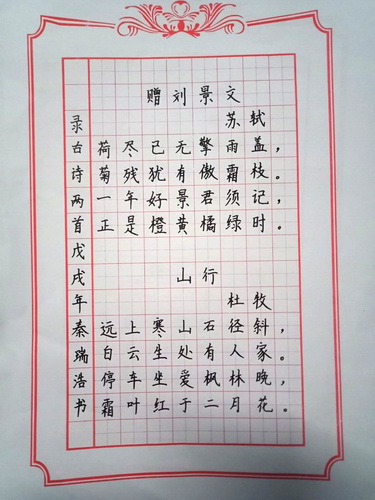 赠刘景文
苏轼
荷尽已无擎雨盖，
菊残犹有傲霜枝。
一年好景君须记，
正是橙黄橘绿时。
山行
杜牧
远上寒山石径斜，
白云生处有人家。
停车坐爱枫林晚，
霜叶红于二月花。
录古诗两首戊戌年秦瑞浩书